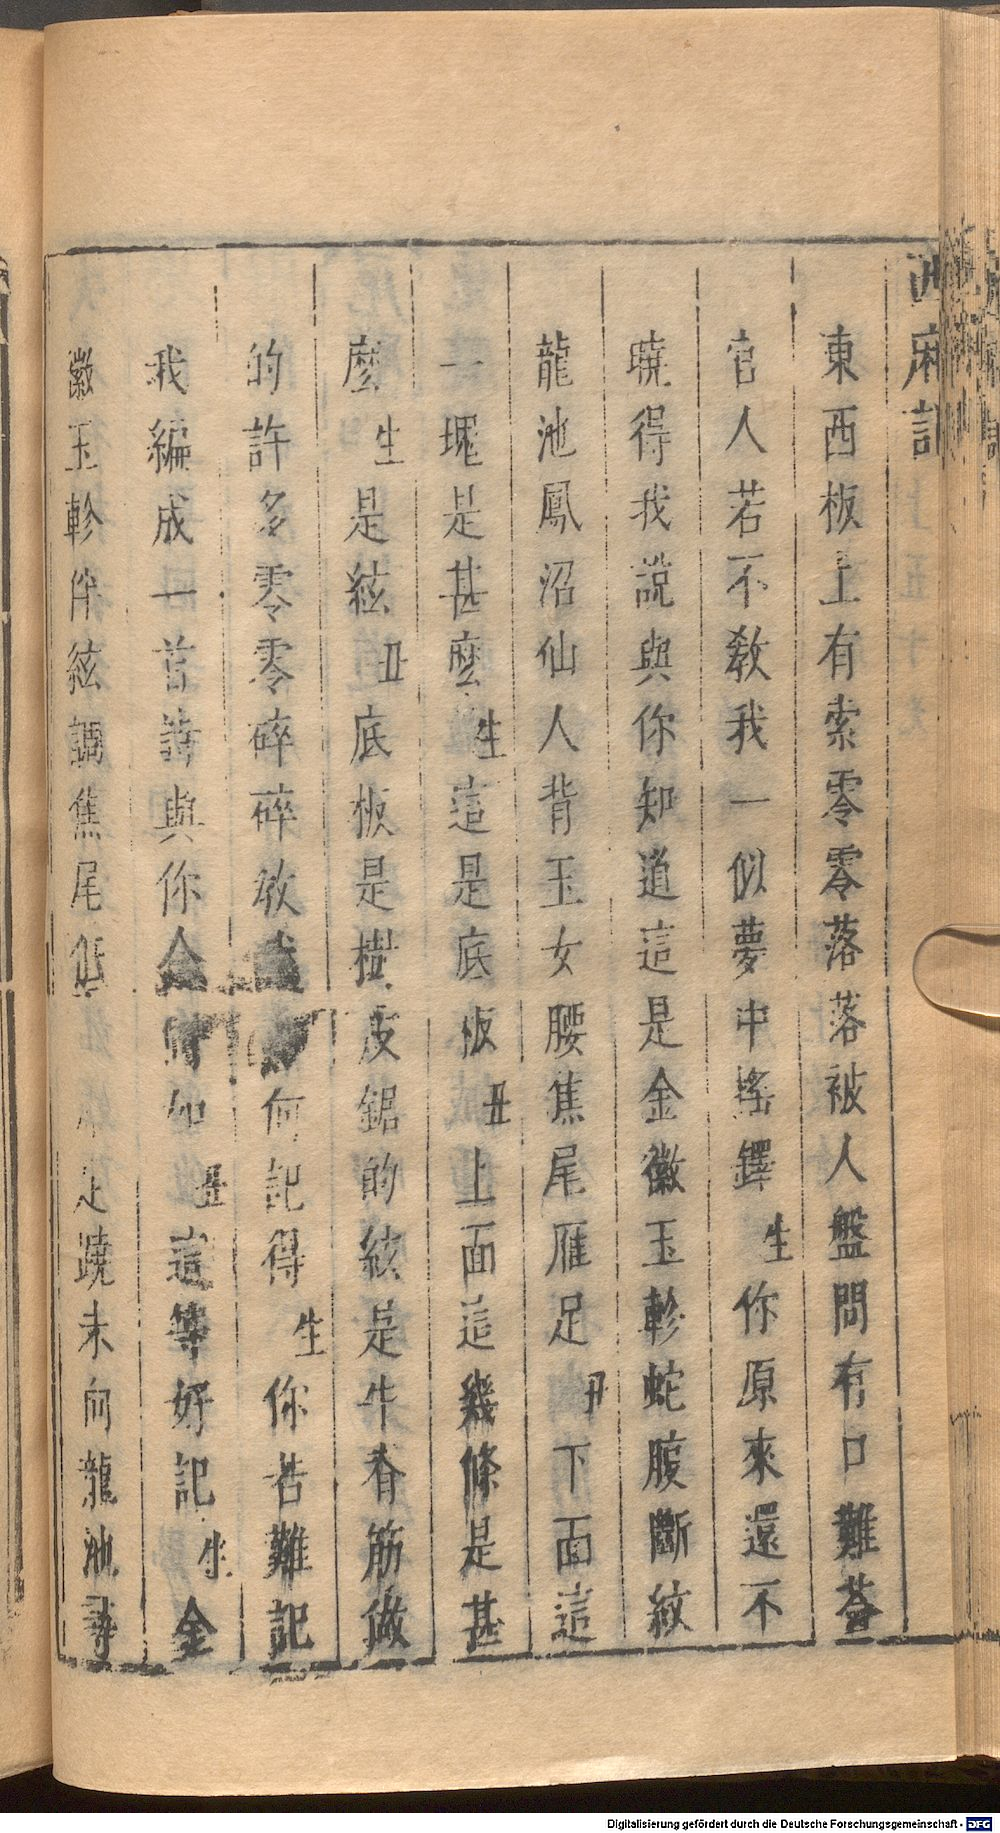 西廂記
東西板上有索零零落落被人盤問有口難荅
官人若不敎我一似夢中搖鐸生你原來還不
曉得我說與你知道這是金徽玉軫蛇腹斷紋
龍池鳳沼仙人背玉女腰焦尾雁足丑下面這
一塊是甚麼生這是底板丑上面這幾條是甚
麼生是絃丑底板是樹皮鋸的絃是牛脊筋做
的許多零零碎碎敎我何記得生你若難記
我編成一首詩與你丑這等好記生金
徽玉軫伴絃調焦尾足蹺未向龍池尋
Digitalisierung gefördert durch die Deutsche Forschungsgemeinschaft - DFG